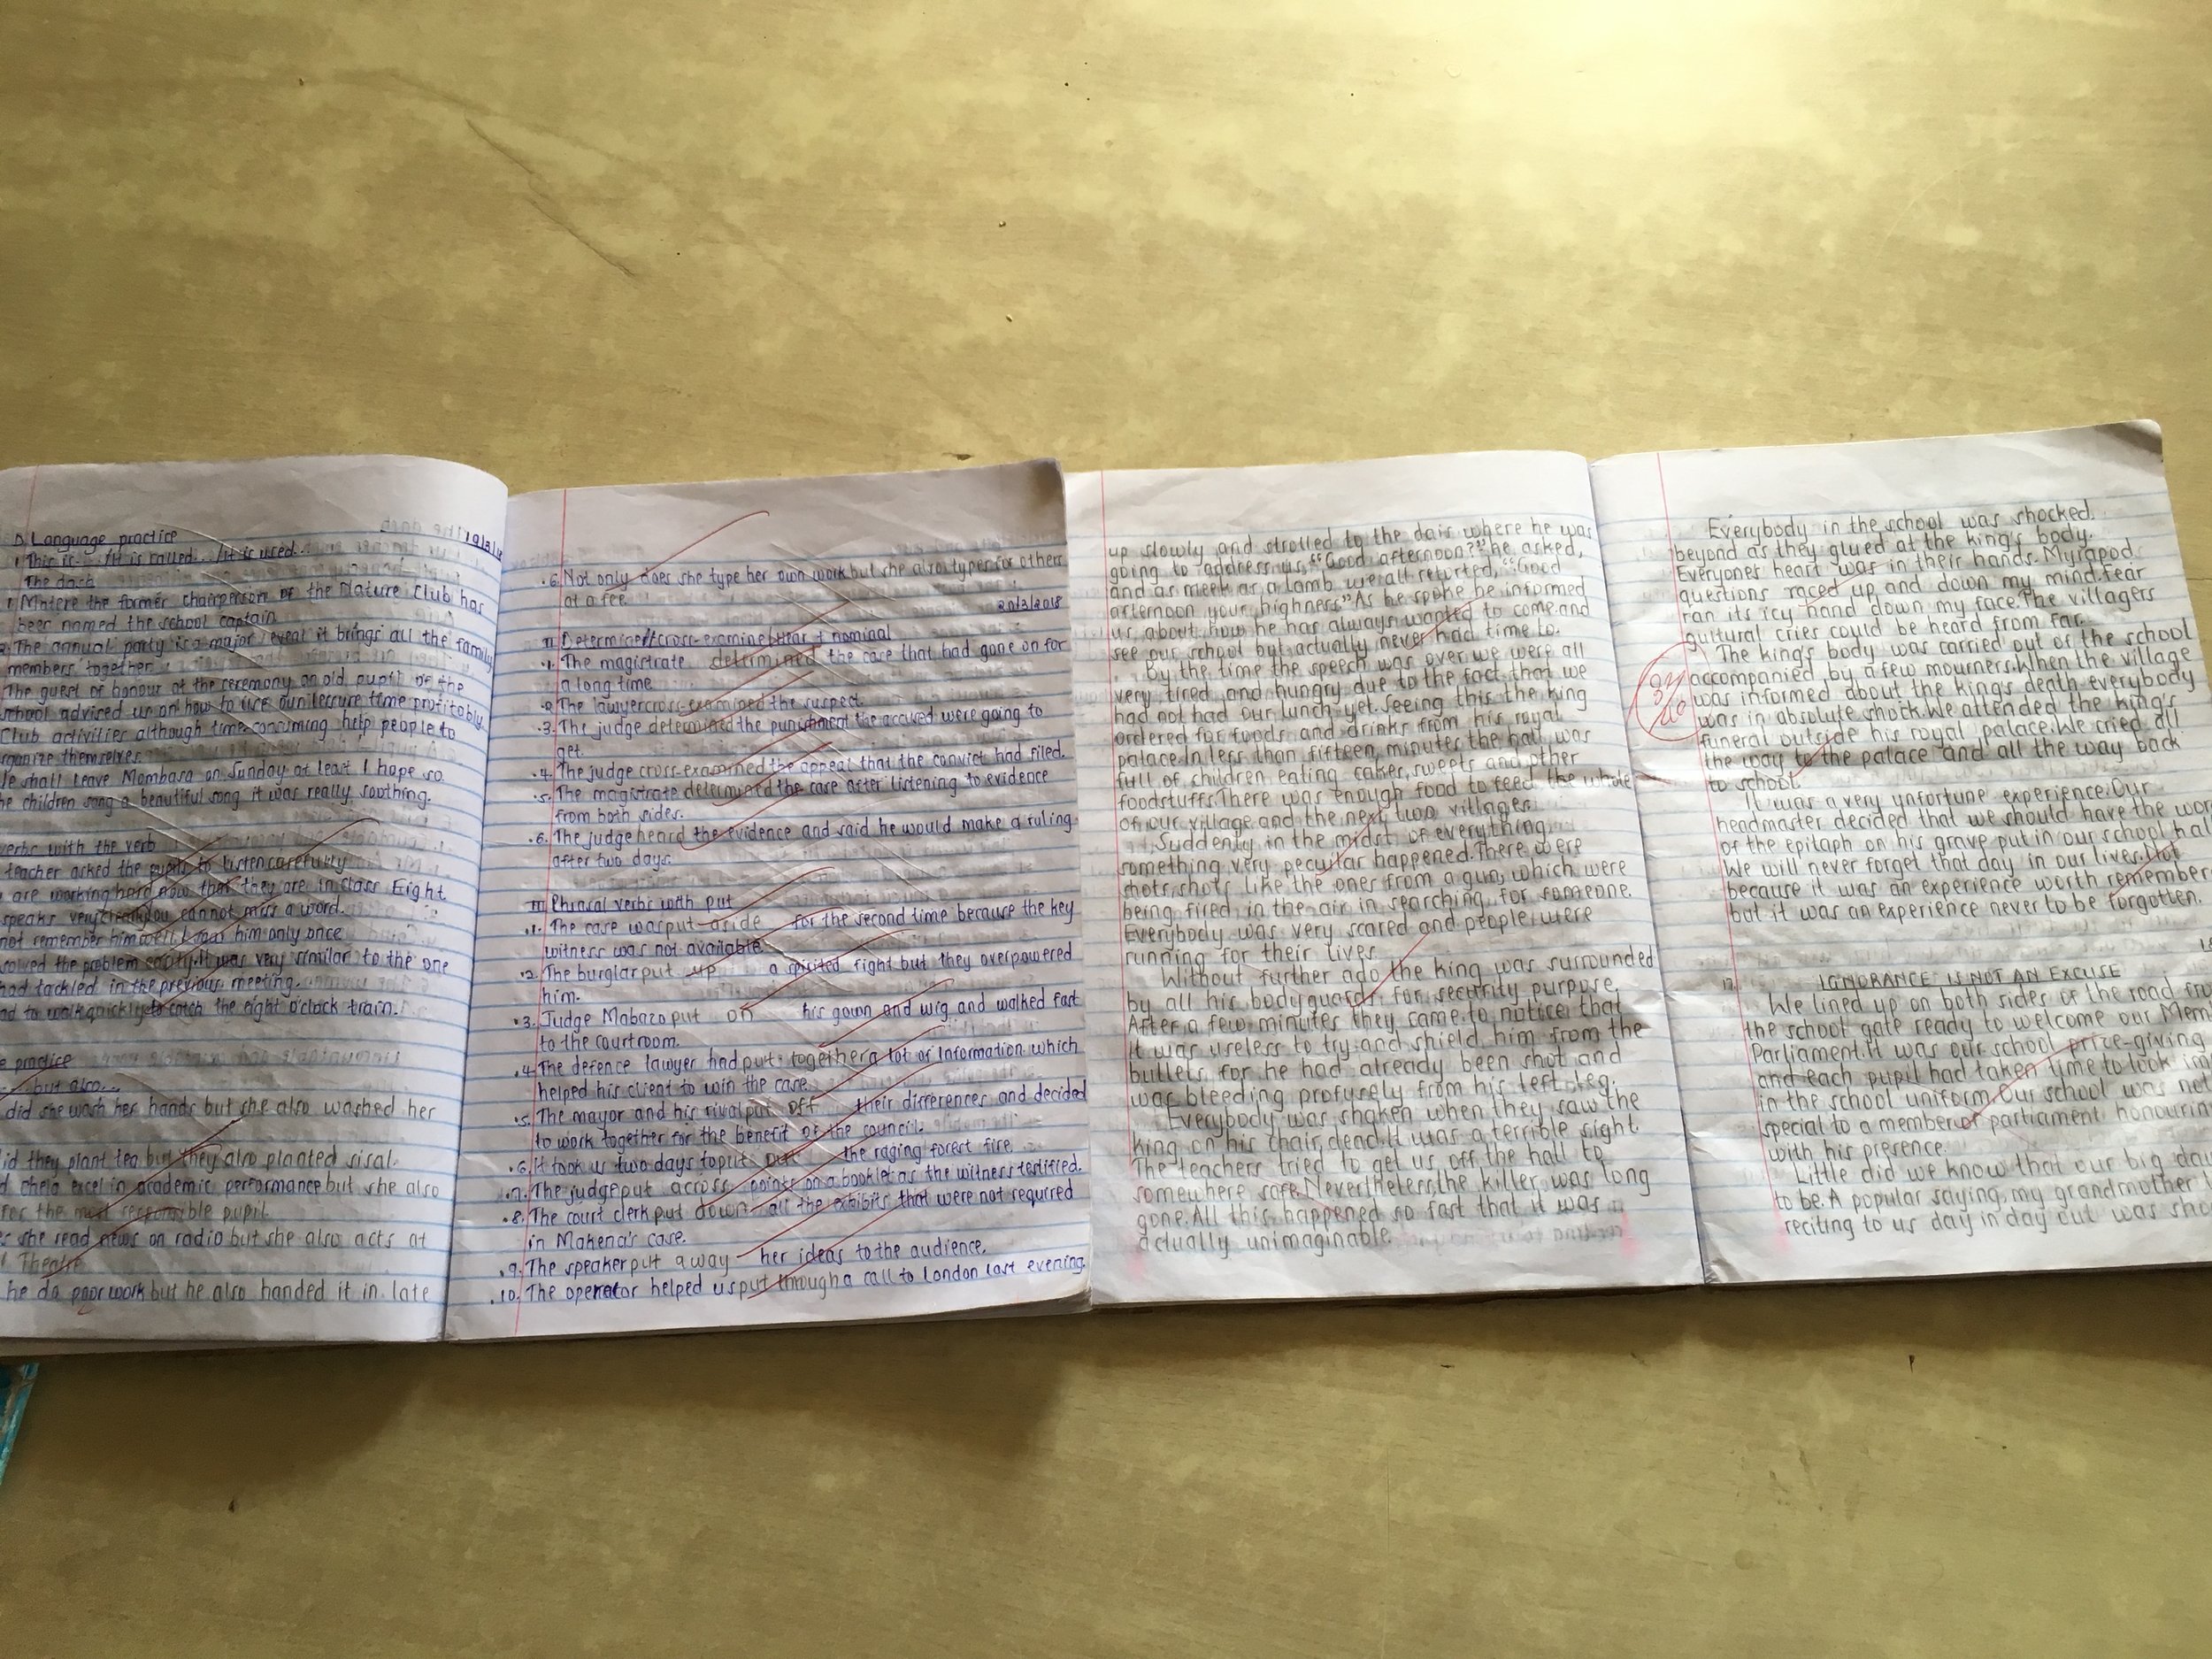 D Language practice 19/3/18
1 This is.../It is called.../It is used...
The dash
1 Mntere the former chairperson of the Nature Club has
been named the school captain
2. The annual party is a major it brings all the family
members together.
The guest of honour at the ceremony an old pupil of the
school adviced us on how to use our leisure time profitably.
Club activities although time-consuming help people to
rganize themselves
le shall leave Mombasa on Sunday at least I hope so.
he children sang a beautiful song it was really soothing.
verbs with the verb
teacher asked the pupils to listen carefully
are working hard now that they are in class Eight
speaks very clearly you cannot miss a word.
not remember him well. I saw him only once
solved the problem easily. It was very similar to the one
had tackled in the previous meeting.
ad to walk quickly to catch the eight o'clock train.
e practice
...but also...
did she wash her hands but she also washed her
id they plant tea but they also planted sisal.
d chela excel in academic performance but she also
for the most responsible pupil.
s she read news on radio but she also acts at
Theatre
he do poor work but he also handed it in late
.6. Not only does she type her own work but she also types for others
at a fee.
20/3/2018
II Determine/cross-examine/hear + nominal
.1. The magistrate determined the case that had gone on for
a long time
.2. The lawyer cross-examined the suspect.
.3. The judge determined the punishment the accused were going to
get.
.4. The judge cross-examined the appeal that the convict had filed.
.5. The magistrate determined the case after listening to evidence
from both sides.
.6. The judge heard the evidence and said he would make a ruling
after two days.
III Phrasal verbs with put
.1. The case was put aside for the second time because the key
witness was not available.
.2. The burglar put up a spirited fight but they overpowered
him.
.3. Judge Mabazo put on his gown and wig and walked fast
to the courtroom.
.4. The defence lawyer had put together a lot of information which
helped his client to win the case.
.5. The mayor and his rival put off their differences and decided
to work together for the benefit of the council.
.6. It took us two days to put out the raging forest fire
.7. The judge put across points on a booklet as the witness testified.
.8. The court clerk put down all the exhibits that were not required
in Makena's case.
.9. The speaker put away her ideas to the audience.
.10. The operator helped us put through a call to London last evening.
up slowly and strolled to the dais where he was
going to address us, "Good afternoon?" he asked,
and as meek as a lamb we all retorted, "Good
afternoon your highness" As he spoke he informed
us about how he has always wanted to come and
see our school but actually never had time to.
By the time the speech was over we were all
very tired and hungry due to the fact that we
had not had our lunch yet. Seeing this the king
ordered for foods and drinks from his royal
palace. In less than fifteen minutes the hall was
full of children eating cakes, sweets and other
foodstuffs. There was enough food to feed the whole
of our village and the next two villages.
Suddenly in the midst of everything
something very peculiar happened. There were
shots, shots like the ones from a gun, which were
being fired in the air in searching for someone.
Everybody was very scared and people were
running for their lives.
Without further ado the king was surrounded
by all his bodyguards for security purpose.
After a few minutes they came to notice that
it was useless to try and shield him from the
bullets for he had already been shot and
was bleeding profusely from his left leg.
Everybody was shaken when they saw the
king on his chair, dead. It was a terrible sight.
The teachers tried to get us off the hall to
somewhere safe. Nevertheless, the killer was long
gone. All this happened so fast that it was
actually unimaginable.
Everybody in the school was shocked
beyond as they glued at the king's body.
Everyones heart was in their hands. Myrapod
questions raced up and down my mind. Fear
ran its icy hand down my face. The villagers
gultural cries could be heard from far.
The king's body was carried out of the school
accompanied by a few mourners. When the village
was informed about the king's death everybody
was in absolute shock. We attended the king's
funeral outside his royal palace. We cried all
the way to the palace and all the way back
to school.
It was a very unfortune experience. Our
headmaster decided that we should have the wor
of the epitaph on his grave put in our school hall
We will never forget that day in our lives. Not
because it was an experience worth remember
but it was an experience never to be forgotten.
12. IGNORANCE IS NOT AN EXCUSE
We lined up on both sides of the road fro
the school gate ready to welcome our Mem
Parliament. It was our school prize-giving
and each pupil had taken time to look
in the school uniform. Our school was
special to a member of parliament honourin
with his presence.
Little did we know that our big day
to be. A popular saying, my grandmother
reciting to us day in day out was